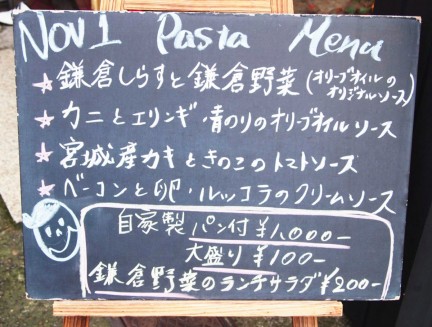 Nov 1 Pasta Menu
★鎌倉しらすと鎌倉野菜(オリーブオイルの
オリジナルソース)
★カニとエリンギ・青のりのオリーブオイルソース
★宮城産カキときのこのトマトソース
★ベーコンと卵・ルッコラのクリームソース
自家製パン付¥1,000-
大盛り¥100-
鎌倉野菜のランチサラダ¥200-